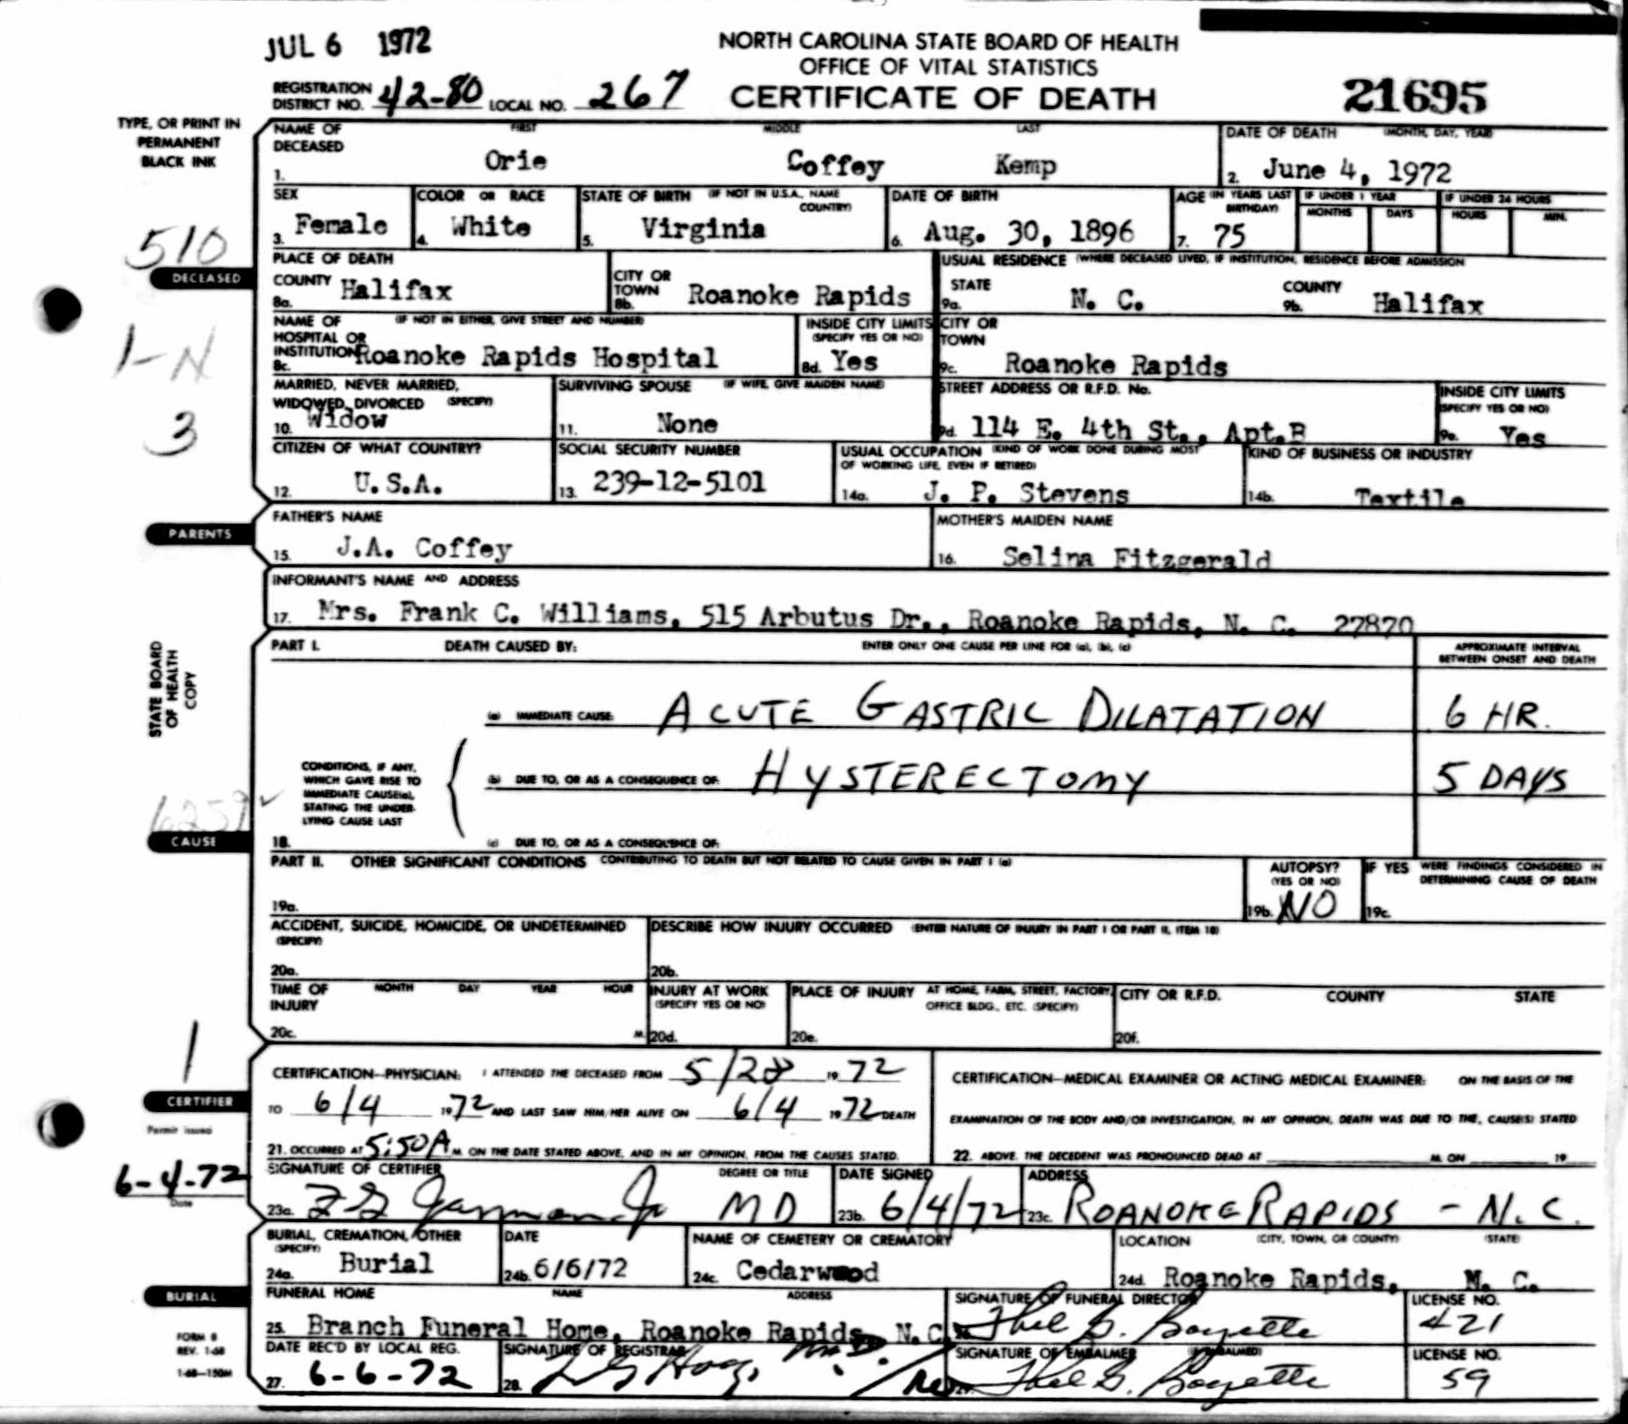 JUL 6 1972
NORTH CAROLINA STATE BOARD OF HEALTH
OFFICE OF VITAL STATISTICS
REGISTRATION DISTRICT NO. 42-80 LOCAL NO. 267 CERTIFICATE OF DEATH 21695
TYPE, OR PRINT IN
PERMANENT
BLACK INK
NAME OF DECEASED FIRST MIDDLE LAST DATE OF DEATH (MONTH, DAY, YEAR)
1. Orie Coffey Kemp 2. June 4, 1972
SEX COLOR OR RACE STATE OF BIRTH (IF NOT IN U.S.A., NAME COUNTRY) DATE OF BIRTH AGE (IN YEARS LAST BIRTHDAY) IF UNDER 1 YEAR IF UNDER 24 HOURS
MONTHS DAYS HOURS MIN.
3. Female 4. White 5. Virginia 6. Aug. 30, 1896 7. 75
510
DECEASED
PLACE OF DEATH USUAL RESIDENCE (WHERE DECEASED LIVED, IF INSTITUTION, RESIDENCE BEFORE ADMISSION
COUNTY CITY OR TOWN STATE COUNTY
8a. Halifax 8b. Roanoke Rapids 9a. N. C. 9b. Halifax
1-N
NAME OF HOSPITAL OR INSTITUTION (IF NOT IN EITHER, GIVE STREET AND NUMBER) INSIDE CITY LIMITS (SPECIFY YES OR NO) CITY OR TOWN
8c. Roanoke Rapids Hospital 8d. Yes 9c. Roanoke Rapids
3
MARRIED, NEVER MARRIED, WIDOWED, DIVORCED (SPECIFY) SURVIVING SPOUSE (IF WIFE, GIVE MAIDEN NAME) STREET ADDRESS OR R.F.D. No. INSIDE CITY LIMITS (SPECIFY YES OR NO)
10. Widow 11. None 9d. 114 E. 4th St., Apt.B 9e. Yes
CITIZEN OF WHAT COUNTRY? SOCIAL SECURITY NUMBER USUAL OCCUPATION (KIND OF WORK DONE DURING MOST OF WORKING LIFE, EVEN IF RETIRED) KIND OF BUSINESS OR INDUSTRY
12. U.S.A. 13. 239-12-5101 14a. J. P. Stevens 14b. Textile
PARENTS
FATHER'S NAME MOTHER'S MAIDEN NAME
15. J.A. Coffey 16. Selina Fitzgerald
INFORMANT'S NAME AND ADDRESS
17. Mrs. Frank C. Williams, 515 Arbutus Dr., Roanoke Rapids, N. C. 27870
STATE BOARD
OF HEALTH
COPY
PART I. DEATH CAUSED BY: ENTER ONLY ONE CAUSE PER LINE FOR (a), (b), (c) APPROXIMATE INTERVAL BETWEEN ONSET AND DEATH
(a) IMMEDIATE CAUSE: ACUTE GASTRIC DILATATION 6 HR.
CONDITIONS, IF ANY,
WHICH GAVE RISE TO
IMMEDIATE CAUSE(a),
STATING THE UNDER-
LYING CAUSE LAST
(b) DUE TO, OR AS A CONSEQUENCE OF: HYSTERECTOMY 5 DAYS
6259
CAUSE
18. (c) DUE TO, OR AS A CONSEQUENCE OF:
PART II. OTHER SIGNIFICANT CONDITIONS CONTRIBUTING TO DEATH BUT NOT RELATED TO CAUSE GIVEN IN PART I (a) AUTOPSY? (YES OR NO) IF YES WERE FINDINGS CONSIDERED IN DETERMINING CAUSE OF DEATH
19a. 19b. NO 19c.
ACCIDENT, SUICIDE, HOMICIDE, OR UNDETERMINED (SPECIFY) DESCRIBE HOW INJURY OCCURRED (ENTER NATURE OF INJURY IN PART I OR PART II, ITEM 18)
20a. 20b.
TIME OF INJURY MONTH DAY YEAR HOUR INJURY AT WORK (SPECIFY YES OR NO) PLACE OF INJURY AT HOME, FARM, STREET, FACTORY, OFFICE BLDG., ETC. (SPECIFY) CITY OR R.F.D. COUNTY STATE
20c. M. 20d. 20e. 20f.
1
CERTIFIER
Permit Issued
6-4-72
Date
CERTIFICATION—PHYSICIAN: I ATTENDED THE DECEASED FROM 5/28 19 72
TO 6/4 19 72 AND LAST SAW HIM/HER ALIVE ON 6/4 19 72 DEATH
21. OCCURRED AT 5:50 A M. ON THE DATE STATED ABOVE, AND IN MY OPINION, FROM THE CAUSES STATED.
CERTIFICATION—MEDICAL EXAMINER OR ACTING MEDICAL EXAMINER: ON THE BASIS OF THE
EXAMINATION OF THE BODY AND/OR INVESTIGATION, IN MY OPINION, DEATH WAS DUE TO THE, CAUSE(S) STATED
22. ABOVE. THE DECEDENT WAS PRONOUNCED DEAD AT M. ON 19
SIGNATURE OF CERTIFIER DEGREE OR TITLE DATE SIGNED ADDRESS
23a. MD 23b. 6/4/72 23c. ROANOKE RAPIDS - N.C.
BURIAL
BURIAL, CREMATION, OTHER (SPECIFY) DATE NAME OF CEMETERY OR CREMATORY LOCATION (CITY, TOWN, OR COUNTY) (STATE)
24a. Burial 24b. 6/6/72 24c. Cedarwood 24d. Roanoke Rapids, N. C.
FUNERAL HOME NAME ADDRESS SIGNATURE OF FUNERAL DIRECTOR LICENSE NO.
25. Branch Funeral Home, Roanoke Rapids, N.C. Thel G. Boyette 421
FORM 8
REV. 1-68
1-68—150M
DATE REC'D BY LOCAL REG. SIGNATURE OF REGISTRAR SIGNATURE OF EMBALMER (IF EMBALMED) LICENSE NO.
27. 6-6-72 28. Thel G. Boyette 59